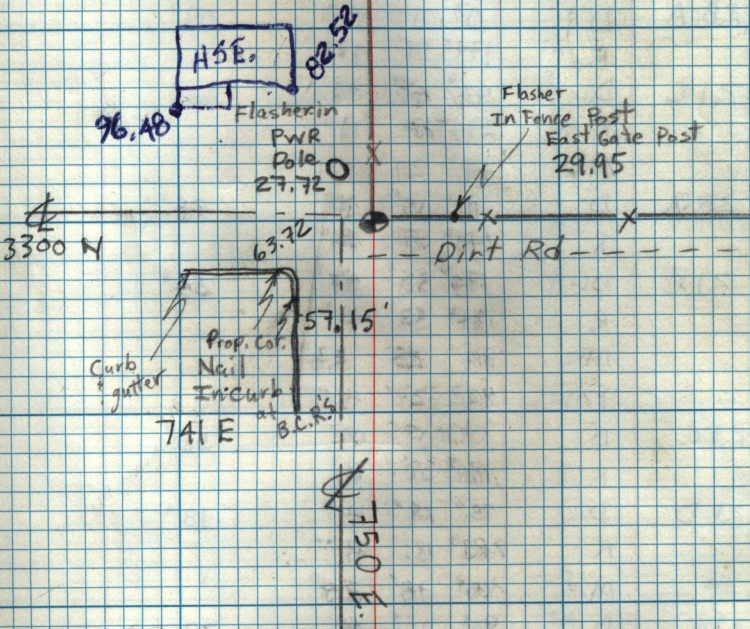 HSE.
82.52
96.48
Flasher in
PWR
Pole
27.72
Flasher
In Fence Post
East Gate Post
29.95
℄
3300 N
63.72
Dirt Rd
57.15'
Prop. Cor.
Nail
In Curb
at
B.C.R.'s
Curb
& gutter
741 E
℄
750 E.